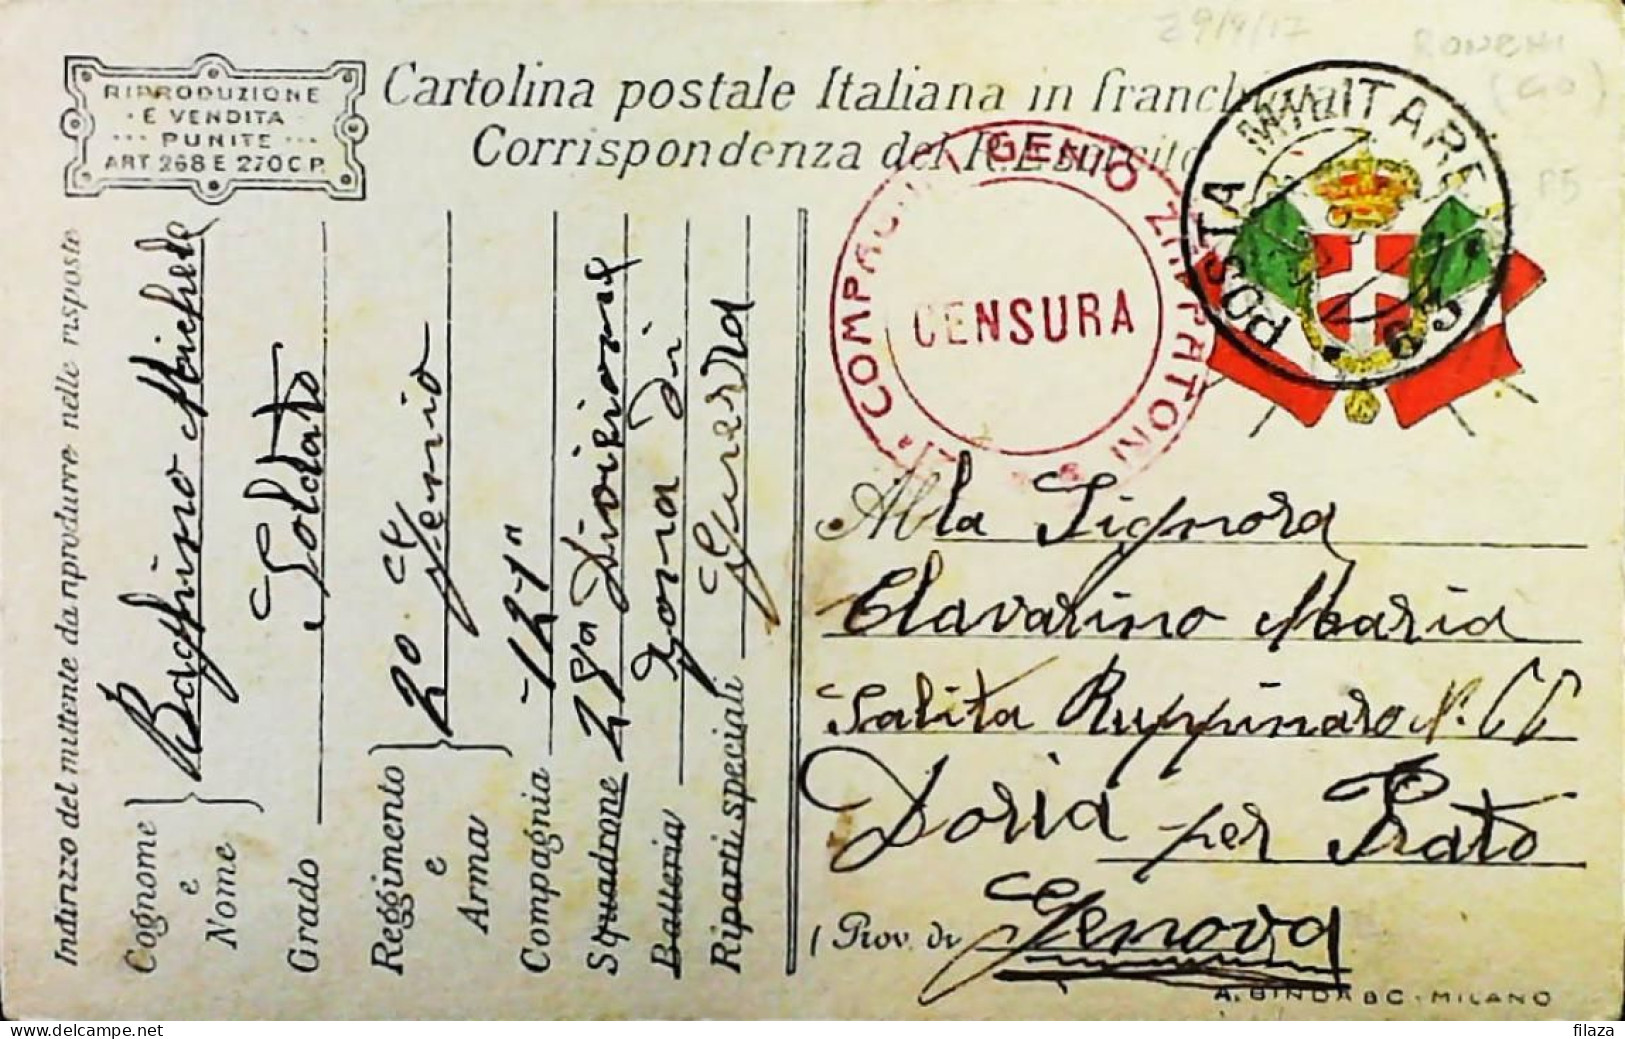 29/9/17
RONCHI
(GO)
P5
RIPRODUZIONE
E VENDITA
PUNITE
ART 268 E 270 C.P.
Cartolina postale Italiana in franchigia
Corrispondenza del R. Esercito
1ª COMPAGNIA GENIO ZAPPATORI
CENSURA
POSTA MILITARE
Indirizzo del mittente da riprodurre nelle risposte
Cognome e Nome
Baffino Michele
Grado Soldato
Reggimento e Arma
20 Genio
Compagnia 121ª
Squadrone 28ª Divisione
Batteria Zona di
Riparti speciali Guerra
Alla Signora
Clavarino Maria
Salita Ruppinaro N.
Doria per Prato
Prov. di Genova
A. BINDA & C. - MILANO
filaza